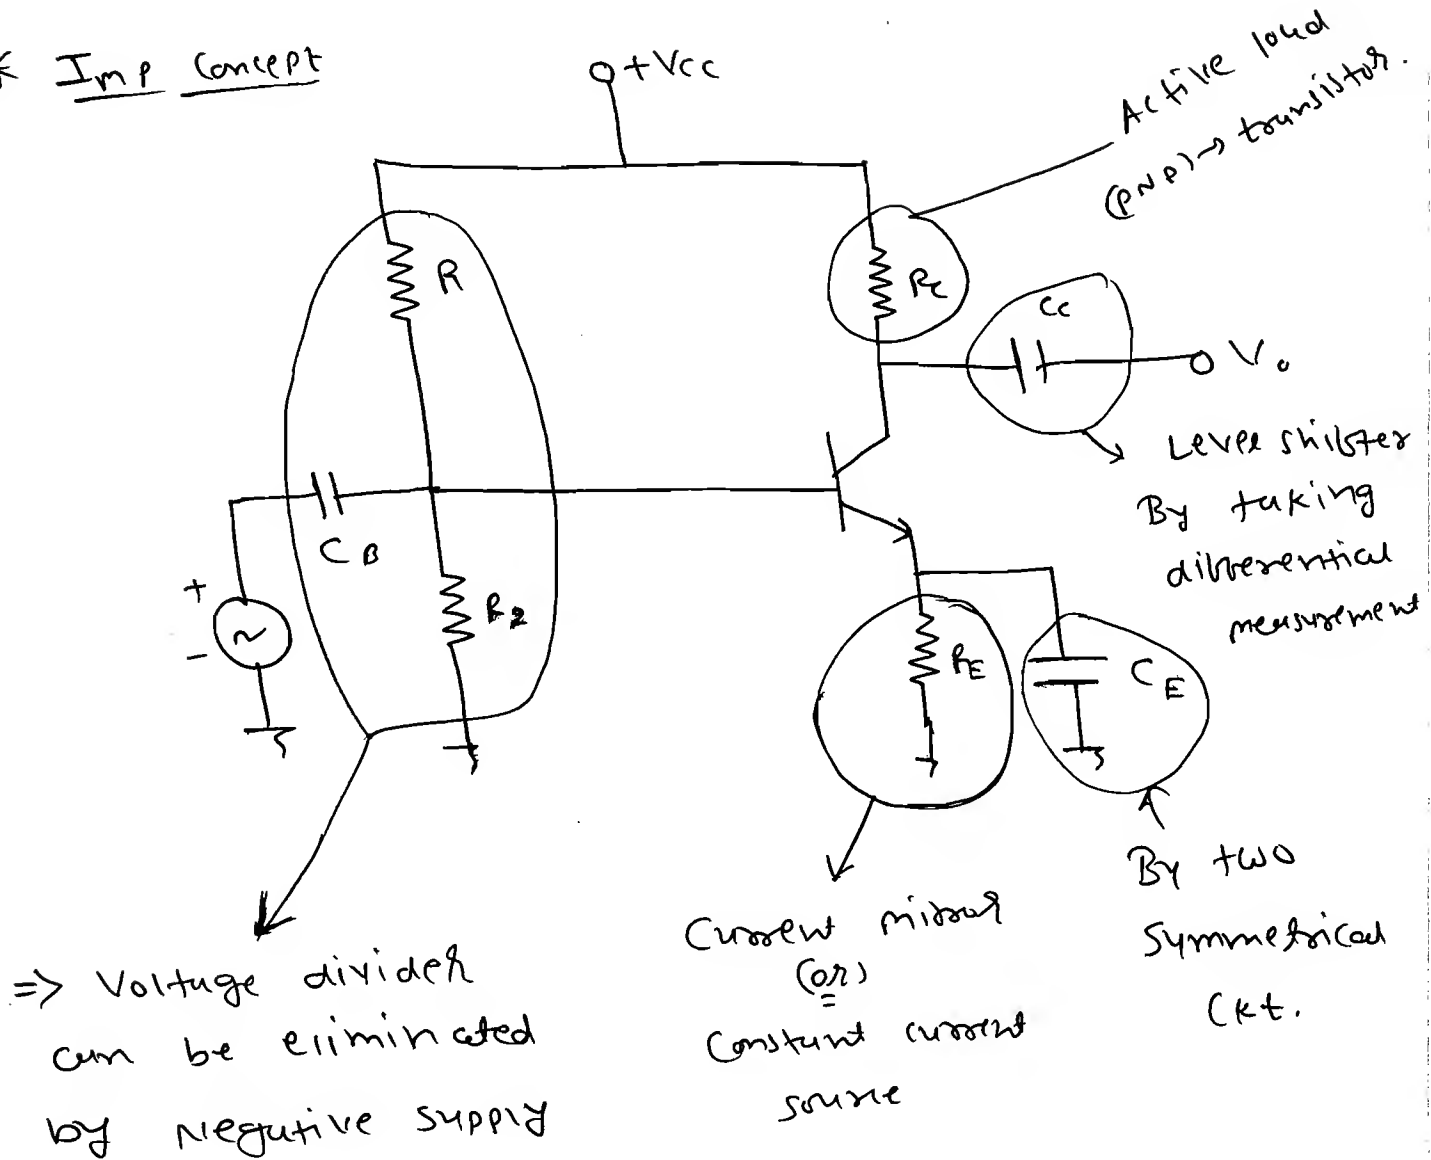 * Imp Concept
+Vcc
Active load
(PNP) → transistor.
R
Rc
Cc
Vo
Level shifter
By taking
differential
measurement
CB
+
~
-
R2
RE
CE
By two
Symmetrical
Ckt.
Current mirror
(or)
Constant current
source
=> Voltage divider
can be eliminated
by Negative supply